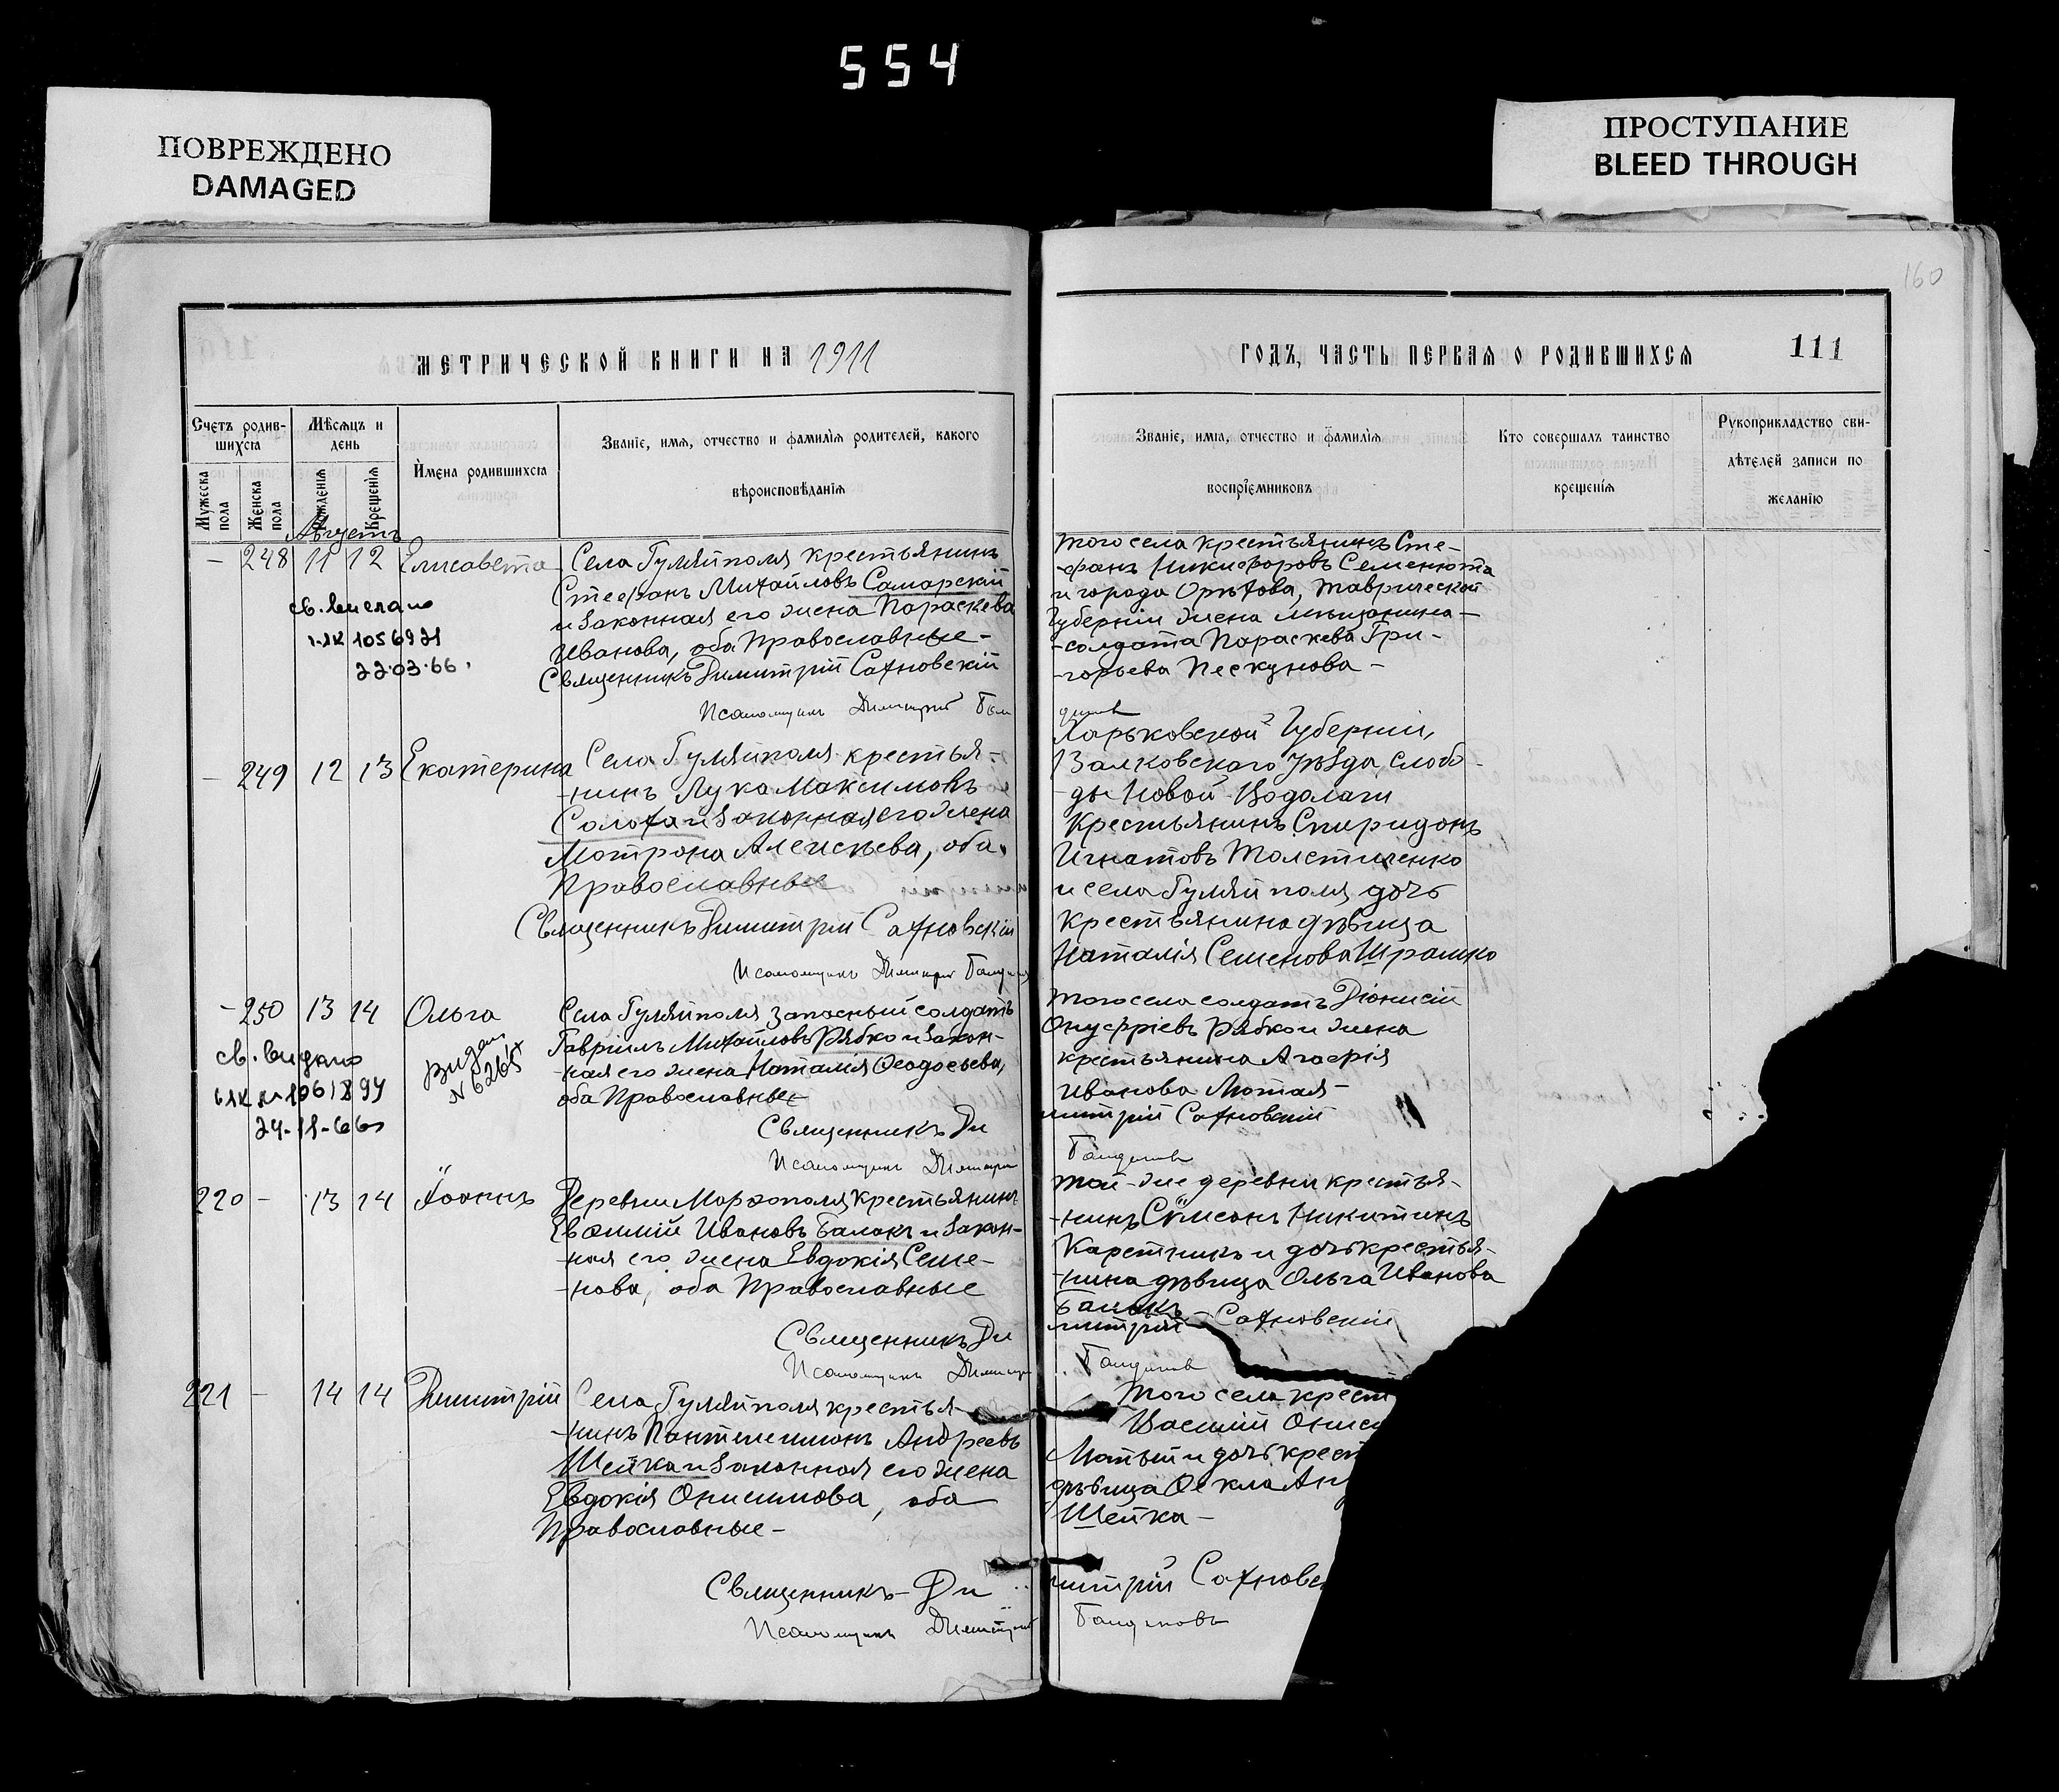 554
ПОВРЕЖДЕНО
DAMAGED
ПРОСТУПАНИЕ
BLEED THROUGH
160
МЕТРИЧЕСКОЙ КНИГИ НА 1911
ГОДЪ, ЧАСТЬ ПЕРВАЯ О РОДИВШИХСЯ
111
Счетъ родив-
шихся
Мѣсяцъ и
день
Имена родившихся
Званіе, имя, отчество и фамилія родителей, какого
вѣроисповѣданія
Мужеска
пола
Женска
пола
Рожденія
Крещенія
Званіе, имя, отчество и фамилія
воспріемниковъ
Кто совершалъ таинство
крещенія
Рукоприкладство сви-
дѣтелей записи по
желанію
Августъ
- 248 11 12 Елисавета
Села Гуляйполя крестьянинъ
Стефанъ Михайловъ Самарскій
и законная его жена Параскева
Иванова, оба Православные -
Священникъ Димитрій Сахновскій
Псаломщикъ Димитрій
св. выслано
1056931
22.03.66.
того села крестьянинъ Сте-
-фанъ Никифоровъ Семенюта
и города Орѣхова, Таврической
Губерніи жена мѣщанина-
-солдата Параскева Гри-
-горьева Пескунова -
- 249 12 13 Екатерина
Села Гуляйполя крестья-
-нинъ Лука Максимовъ
Солоха и законная его жена
Мотрона Алексѣева, оба
Православные
Священникъ Димитрій Сахновскій
Псаломщикъ Димитрій
Харьковской Губерніи,
Валковскаго уѣзда, слобо-
ды Новой-Водолаги
крестьянинъ Спиридонъ
Игнатовъ Толстиченко
и села Гуляйполя дочь
крестьянина дѣвица
Наталія Семенова Шрамко
- 250 13 14 Ольга
Села Гуляйполя запасный солдатъ
Гавріилъ Михайловъ Рябко и закон-
-ная его жена Наталія Ѳеодосьева,
оба Православные
Священникъ Ди
Псаломщикъ Димитрі
св. выдано
24-11-66
Выдан
N 6265
того села солдатъ Діонисій
Онуфріевъ Рябко и жена
крестьянина Агафія
Иванова Лютая -
митрій Сахновскій
220 - 13 14 Іоаннъ
Деревни Марфополя крестьянинъ
Евфимій Ивановъ Балакъ и закон-
-ная его жена Евдокія Семе-
-нова, оба Православные
Священникъ Ди
Псаломщикъ Димитрі
той-же деревни крестья-
-нинъ Сѵмеонъ Никитинъ
Каретникъ и дочь крестья-
-нина дѣвица Ольга Иванова
Балакъ
митрій Сахновскій
221 - 14 14 Димитрій
Села Гуляйполя крестья-
-нинъ Пантелеимонъ Андреевъ
Шейка и законная его жена
Евдокія Онисимова, оба
Православные -
Священникъ Ди
Псаломщикъ Димитрій
того села крест
Василій Ониси
Лютый и дочь крест
дѣвица Ѳекла Ан
Шейка -
митрій Сахновс